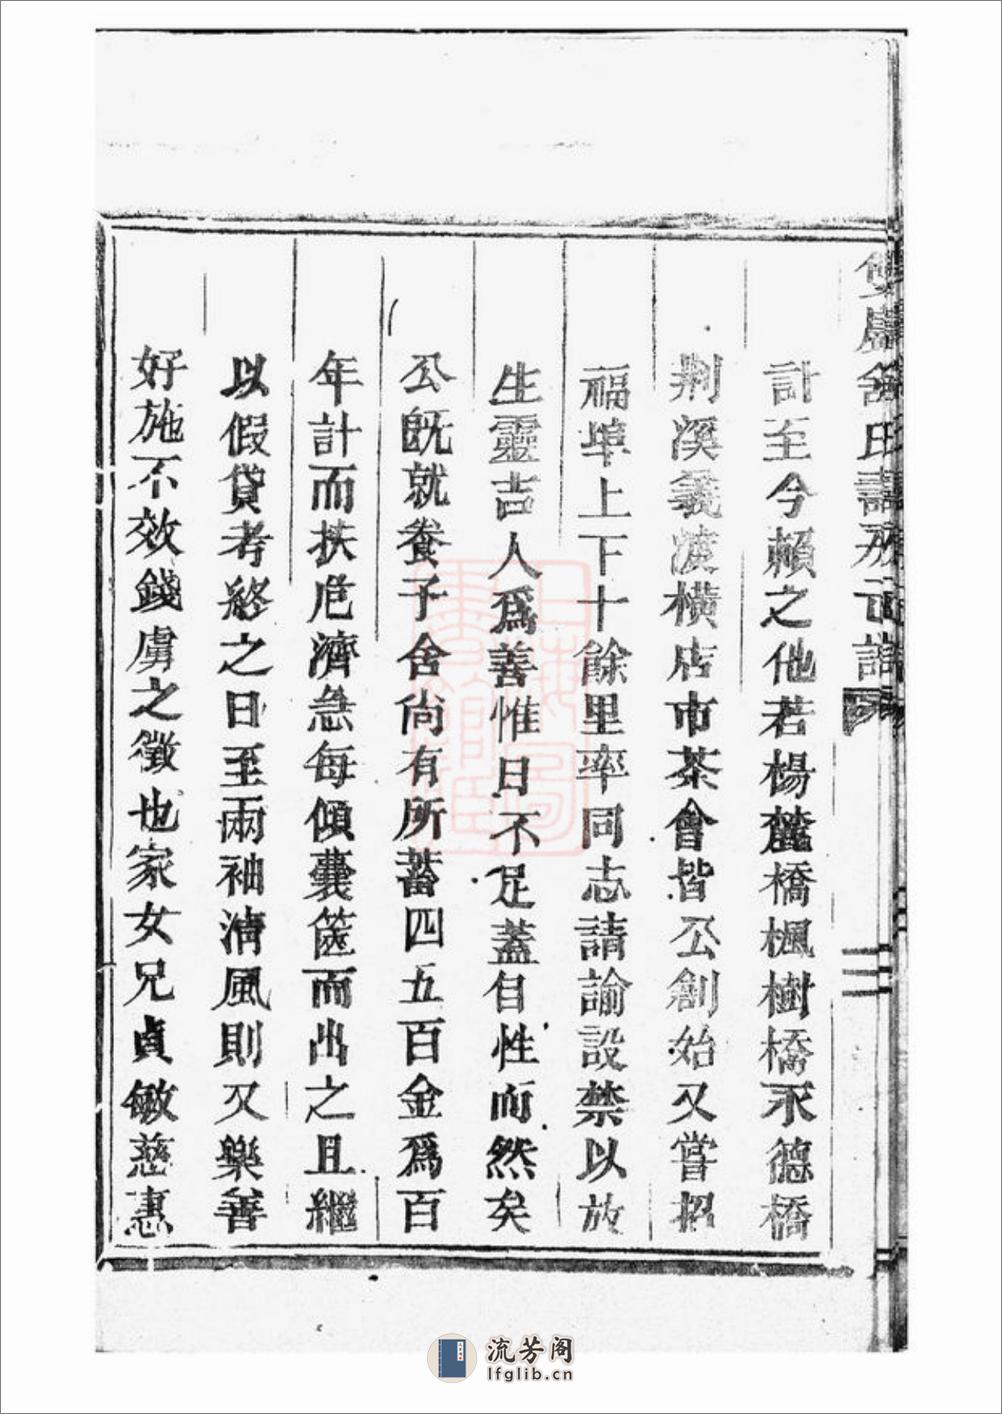 計至今賴之他若楊麓橋楓樹橋永德橋
荆溪義渡橫店市茶會皆公創始又嘗招
福埠上下十餘里率同志請諭設禁以放
生靈吉人爲善惟日不足蓋自性而然矣
公既就養子舍尚有所蓄四五百金爲百
年計而扶危濟急每傾囊篋而出之且繼
以假貸考終之日至兩袖清風則又樂善
好施不效錢虜之徵也家女兄貞敏慈惠
流芳阁
lfglib.cn